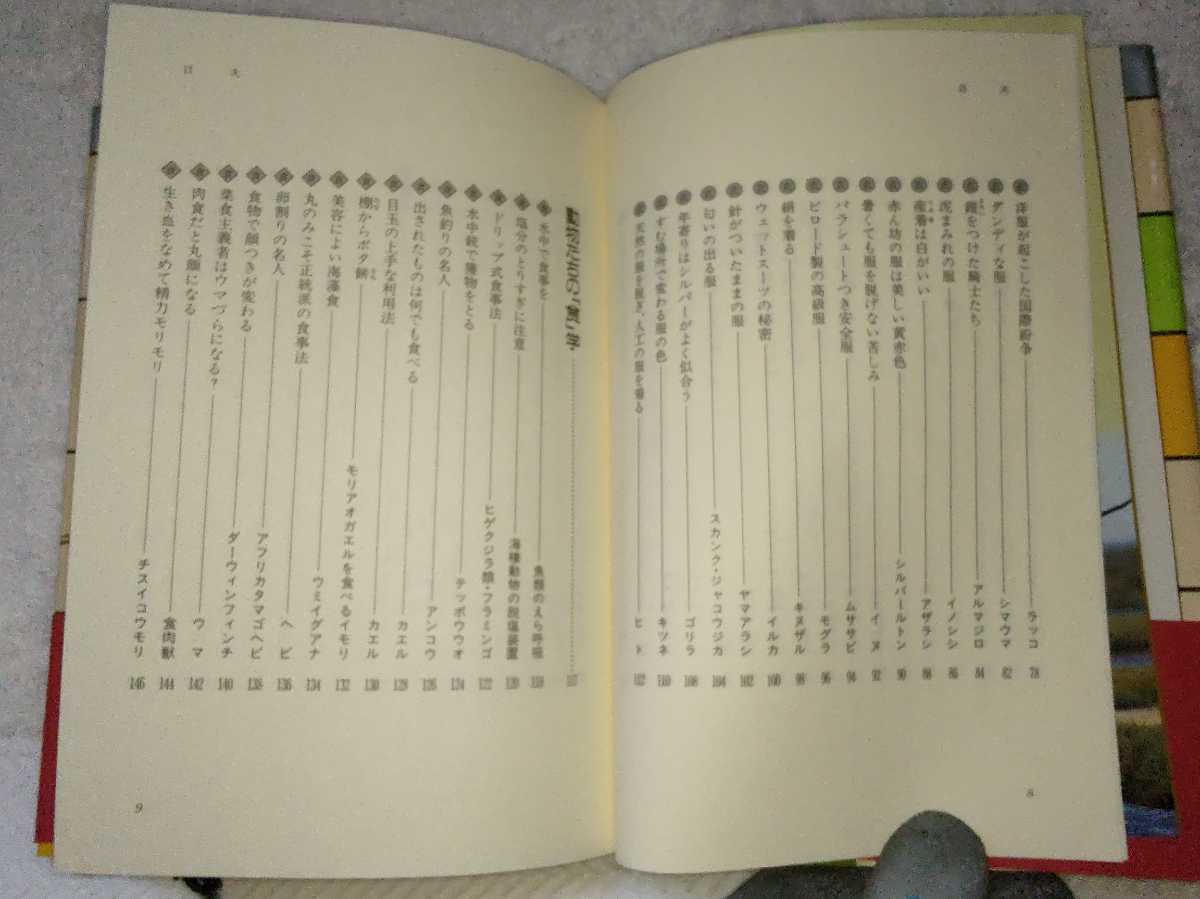 目次
洋服が起こした国際紛争 ラッコ 78
ダンディな服 シマウマ 82
鎧をつけた騎士たち アルマジロ 84
泥まみれの服 イノシシ 86
産着は白がいい アザラシ 88
赤ん坊の服は美しい黄赤色 シルバールトン 90
暑くても服を脱げない苦しみ イヌ 92
パラシュートつき安全服 ムササビ 94
ビロード製の高級服 モグラ 96
絹を着る キヌザル 98
ウェットスーツの秘密 イルカ 100
針がついたままの服 ヤマアラシ 102
匂いの出る服 スカンク・ジャコウジカ 104
年寄りはシルバーがよく似合う ゴリラ 108
すむ場所で変わる服の色 キツネ 110
天然の服を脱ぎ、人工の服を着る ヒト 112
8
目次
水中で食事を 魚類のえら呼吸
塩分のとりすぎに注意 海棲動物の脱塩装置 120
ドリップ式食事法 ヒゲクジラ類・フラミンゴ 122
水中銃で獲物をとる テッポウウオ 124
魚釣りの名人 アンコウ 126
出されたものは何でも食べる カエル 128
目玉の上手な利用法 カエル 130
棚からボタ餅 モリアオガエルを食べるイモリ 132
美容によい海藻食 ウミイグアナ 134
丸のみこそ正統派の食事法 ヘビ 136
卵割りの名人 アフリカタマゴヘビ 138
食物で顔つきが変わる ダーウィンフィンチ 140
菜食主義者はウマづらになる? ウマ 142
肉食だと丸顔になる 食肉獣 144
生き血をなめて精力モリモリ チスイコウモリ 146
9